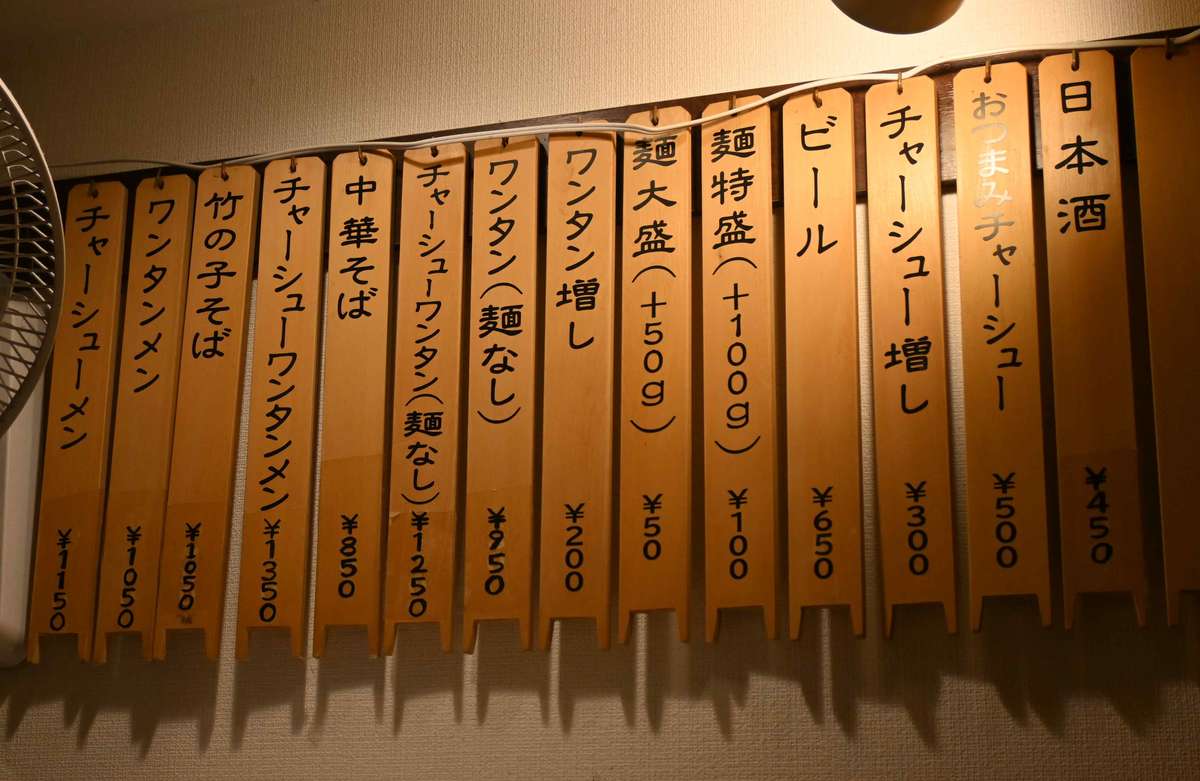 日本酒 ¥450
おつまみチャーシュー ¥500
チャーシュー増し ¥300
ビール ¥650
麺特盛(+100g) ¥100
麺大盛(+50g) ¥50
ワンタン増し ¥200
ワンタン(麺なし) ¥950
チャーシューワンタン(麺なし) ¥1250
中華そば ¥850
チャーシューワンタンメン ¥1350
竹の子そば ¥1050
ワンタンメン ¥1050
チャーシューメン ¥1150